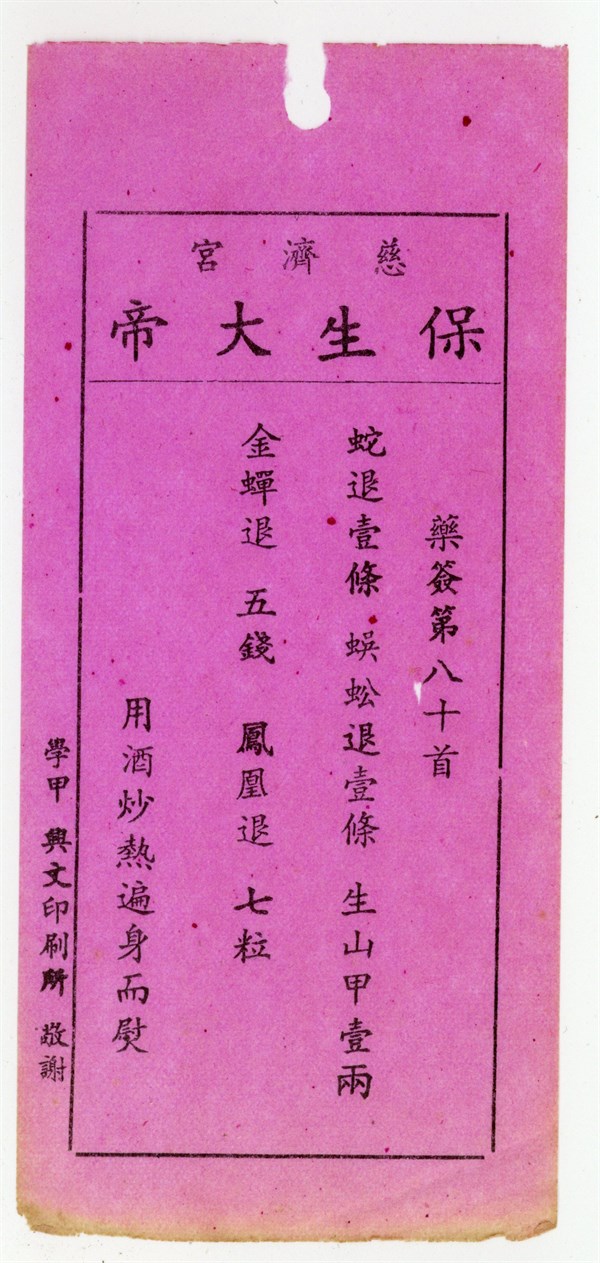 慈濟宮
保生大帝
藥簽第八十首
蛇退壹條 蜈蚣退壹條 生山甲壹兩
金蟬退 五錢 鳳凰退 七粒
用酒炒熱遍身而熨
學甲 興文印刷所 敬謝